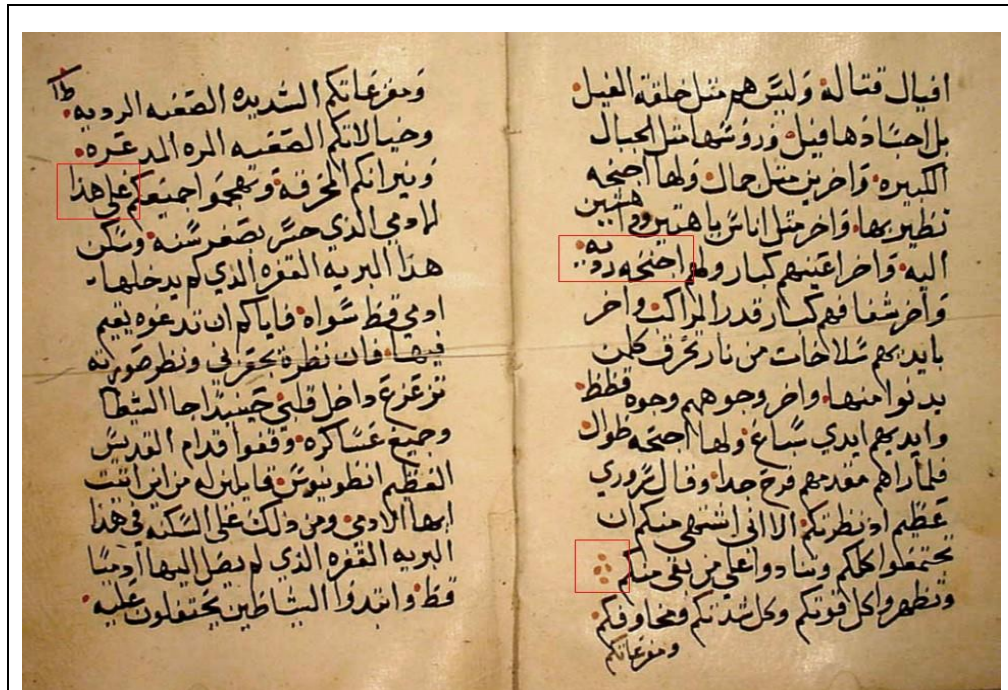 افيال قتاله وليس هم مثل خلقة الفيل
بل اجسادها فيل ورؤسها مثل الجبال
الكبيره واخرين مثل جمال ولها اجنحه
تطير بها واخر مثل اناس باهتين
اليه واخر اعينهم كبار ولهم اجنحه رديه
واخر شفافهم كبار قدر المراكب واخر
بايديهم سلاحات من نار تحرق كلمن
يدنوا منها واخر وجوههم وجوه قطط
وايديهم ايدي سباع ولها اجنحه طوال
فلما راهم مقدمهم فرح جدا وقال سروري
عظيم اذ نظرتكم الا اني اشتهي منكم ان
تجتمعوا كلكم وتنادوا علي من بقي منكم
وتظهروا كل قوتكم وكل شدتكم ومخاوفكم
ومفزعاتكم
ومفزعاتكم الشديده الصعبه الرديه
وخيالاتكم الصعبه المره المدعره
ونيرانكم المحرقه وتهجموا جميعكم علي هذا
الادمي الذي جسر بصغر سنه وسكن
هذا البريه القفره الذي لم يدخلها
ادمي قط سواه فاياكم ان تدعوه يقيم
فيها فان نظره يحقرني ونظر صورته
تزعزع داخل قلبي حينيذ اجا الشيطا
وجميع عساكره وقفوا قدام القديس
العظيم انطونيوس قايلين له من اين اتيت
ايها الادمي ومن ذلك علي السكنه في هذا
البريه القفره الذي لم يصل اليها ادميا
قط وابتدوا الشياطين يحتفلون عليه